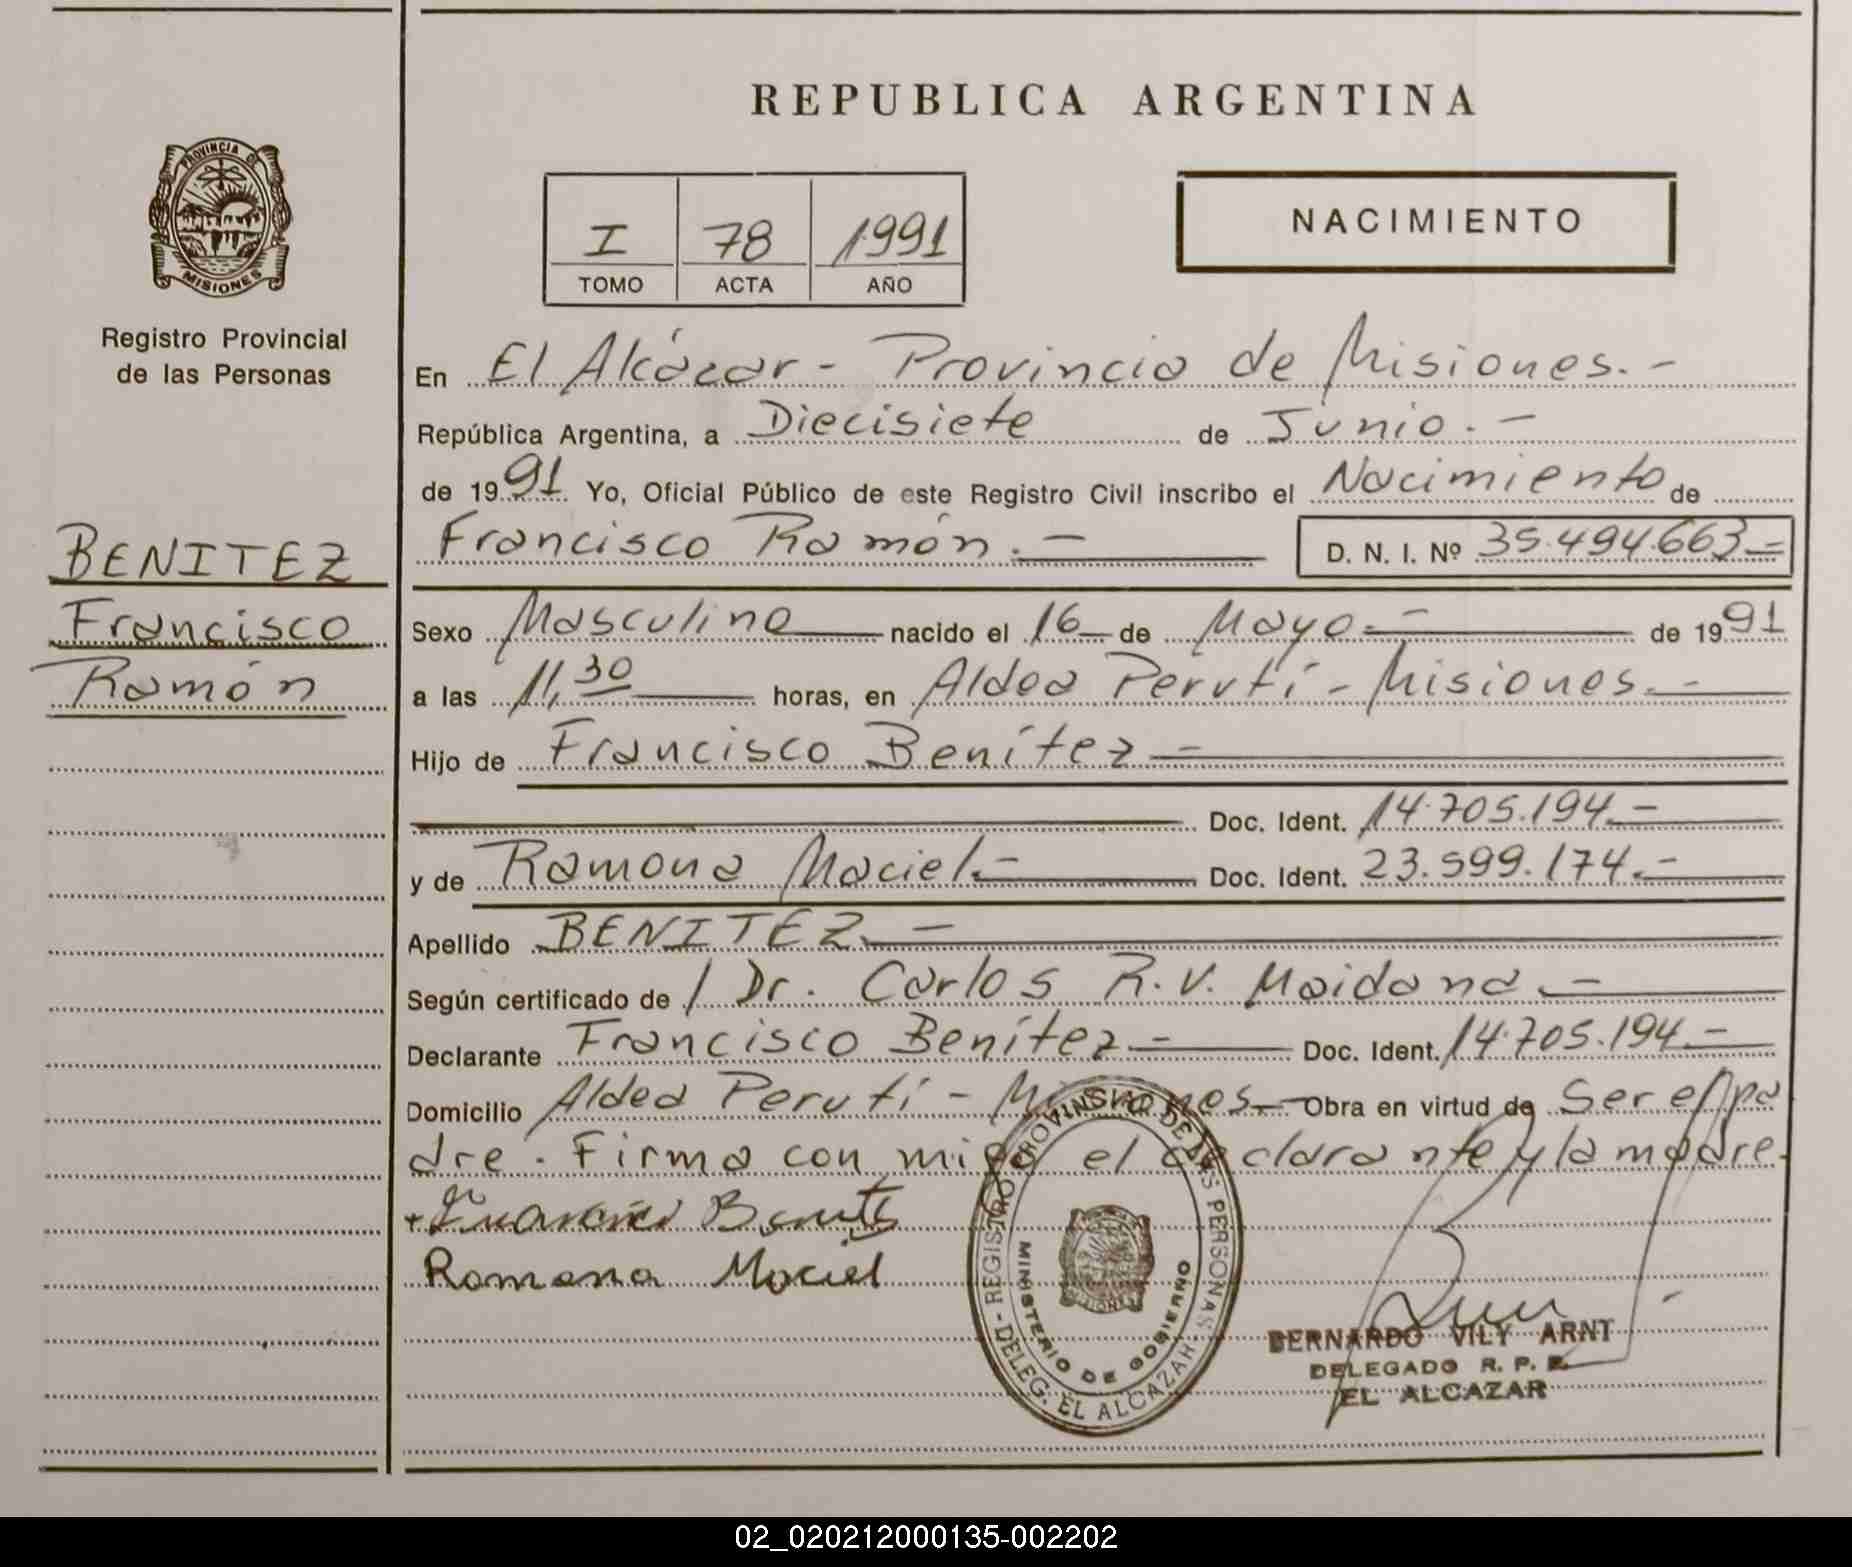 REPUBLICA ARGENTINA
PROVINCIA DE
MISIONES
Registro Provincial
de las Personas
I 78 1991
TOMO ACTA AÑO
NACIMIENTO
En El Alcázar - Provincia de Misiones.-
República Argentina, a Diecisiete de Junio.-
de 1991 Yo, Oficial Público de este Registro Civil inscribo el Nacimiento de
Francisco Ramón.-
D. N. I. Nº 35.494.663-
BENITEZ
Francisco
Ramón
Sexo Masculino nacido el 16 de Mayo.- de 1991
a las 11,30 horas, en Aldea Perutí - Misiones.-
Hijo de Francisco Benítez-
Doc. Ident. 14.705.194.-
y de Ramona Maciel.- Doc. Ident. 23.599.174.-
Apellido BENITEZ.-
Según certificado de / Dr. Carlos R.V. Maidana.-
Declarante Francisco Benítez- Doc. Ident. 14.705.194-
Domicilio Aldea Perutí - Misiones.- Obra en virtud de Ser el pa
dre. Firma con migo el declarante y la madre.
+ Francisco Benites
Ramona Maciel
REGISTRO PROVINCIAL DE LAS PERSONAS - DELEG. EL ALCAZAR -
MINISTERIO DE GOBIERNO
BERNARDO VILY ARNT
DELEGADO R. P. P.
EL ALCAZAR
02_020212000135-002202